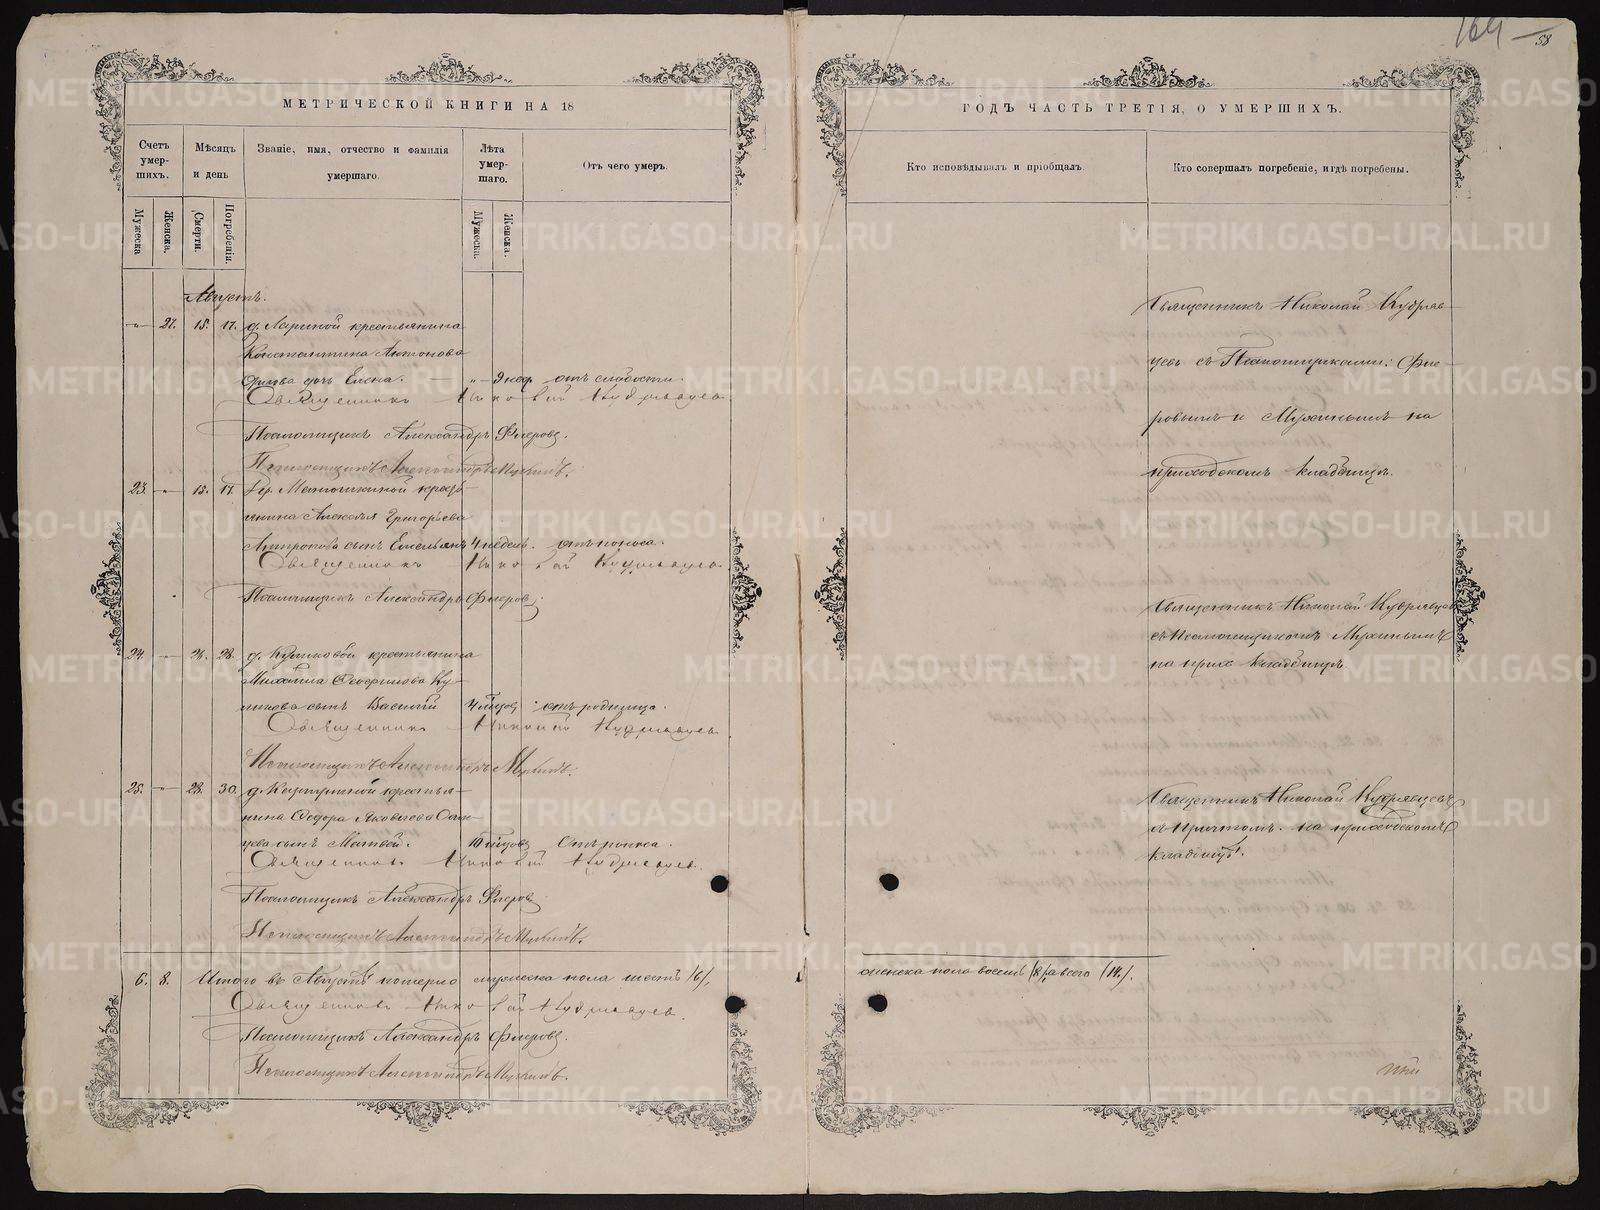 164
58
МЕТРИЧЕСКОЙ КНИГИ НА 18
ГОДЪ ЧАСТЬ ТРЕТІЯ, О УМЕРШИХЪ.
Счетъ умер-шихъ.
Мѣсяцъ и день
Званіе, имя, отчество и фамилія умершаго.
Лѣта умер-шаго.
Отъ чего умеръ.
Кто исповѣдывалъ и пріобщалъ
Кто совершалъ погребеніе, и гдѣ погребены.
Мужеска
Женска.
Смерти.
Погребенія.
Мужеска.
Женска.
Августъ.
27. 15. 17. д. крестьянина
Константина Антонова
дочь Елена. 9 нед. отъ слабости.
Священникъ Николай Кудрявцевъ
Псаломщикъ Александръ Флеровъ.
Псаломщикъ Александръ Мухинъ.
Священникъ Николай Кудряв-
цевъ съ Псаломщиками: Фле-
ровымъ и Мухинымъ на
приходскомъ кладбищѣ.
23. 15. 17. кресть-
янина Алексѣя Григорьева
Антропова сынъ Емельянъ 4 недѣль. отъ поноса.
Священникъ Николай Кудрявцевъ
Псаломщикъ Александръ Флеровъ.
Священникъ Николай Кудрявцевъ
съ Псаломщикомъ Мухинымъ
на прих. кладбищѣ.
24. 26. 28. д. Куликовой крестьянина
Михаила Ку-
ликова сынъ Василій 4 отъ родимца.
Священникъ Николай Кудрявцевъ
Псаломщикъ Александръ Мухинъ.
Священникъ Николай Кудрявцевъ
съ Причтомъ. на приходскомъ
кладбищѣ.
25. 28. 30. д. крестья-
нина Ѳедора Яковлева
сынъ Матвей. 10 мѣсяцовъ Отъ поноса.
Священникъ Николай Кудрявцевъ.
Псаломщикъ Александръ Флеровъ
Псаломщикъ Александръ Мухинъ.
6. 8. Итого въ Августѣ померло мужеска пола шесть /6/,
женска пола восемь /8/, а всего /14/.
Священникъ Николай Кудрявцевъ.
Псаломщикъ Александръ Флеровъ.
Псаломщикъ Александръ Мухинъ.
METRIKI.GASO-URAL.RU